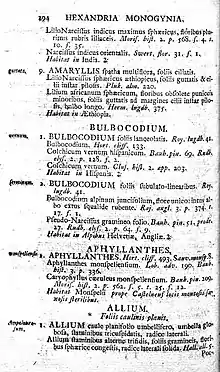 294 HEXANDRIA MONOGYNIA.
LilioNarcissus indicus maximus sphæricus, floribus plurimis rubris liliaceis. Moris. hist. 2. p. 568. s. 4. t. 10. f. 35.
Narcissus indicus orientalis. Swert. flor. 31. f. 1.
Habitat in India. ♃
guttata. 9. AMARYLLIS spatha multiflora, foliis ciliatis.
LilioNarcissus sphæricus æthiopicus, foliis guttatis & ciliis instar pilosis. Pluk. alm. 220.
Lilium africanum sphæricum, floribus obsolete puniceis minoribus, foliis guttatis ad margines ciliis instar pilosis, bulbo longo. Herm. lugdb. 375.
Habitat in Æthiopia.
BULBOCODIUM.
vernum. 1. BULBOCODIUM foliis lanceolatis. Roy. lugdb. 41.
Bulbocodium. Hort. cliff. 133.
Colchicum vernum hispanicum. Bauh. pin. 69. Rudb. elys. 2. p. 128. f. 2.
Colchicum vernum. Clus. hist. 2. app. 203.
Habitat in Hispania. ♃
2. BULBOCODIUM foliis subulato-linearibus. Roy. lugdb. 41.
Bulbocodium alpinum juncifolium, flore unico; intus albo extus squalide rubente. Raj. angl. 3. p. 374. t. 17. f. 1.
Pseudo-Narcissus gramineo folio. Bauh. pin. 51. prodr. 27. Rudb. elys. 2. p. 64. f. 9.
Habitat in Alpibus Helvetiæ, Angliæ. ♃
APHYLLANTHES.
1. APHYLLANTHES. Hort. cliff. 493.
Aphyllanthes monspeliensium. Lob. adv. 190. hist. 3. p. 336.
Caryophyllus cæruleus monspeliensium. Bauh. pin. 209. Moris. hist. 2. p. 562. s. 5. t. 25. f. 12.
Habitat Monspelii prope
ALLIUM.
* Foliis caulinis planis.
1. ALLIUM caule planifolio umbellifero, umbella globosa, staminibus tricuspidatis, radice
Allium staminibus alterne trifidis, foliis gramineis, floribus sphærice congestis, radice laterali solida. Hall. all.